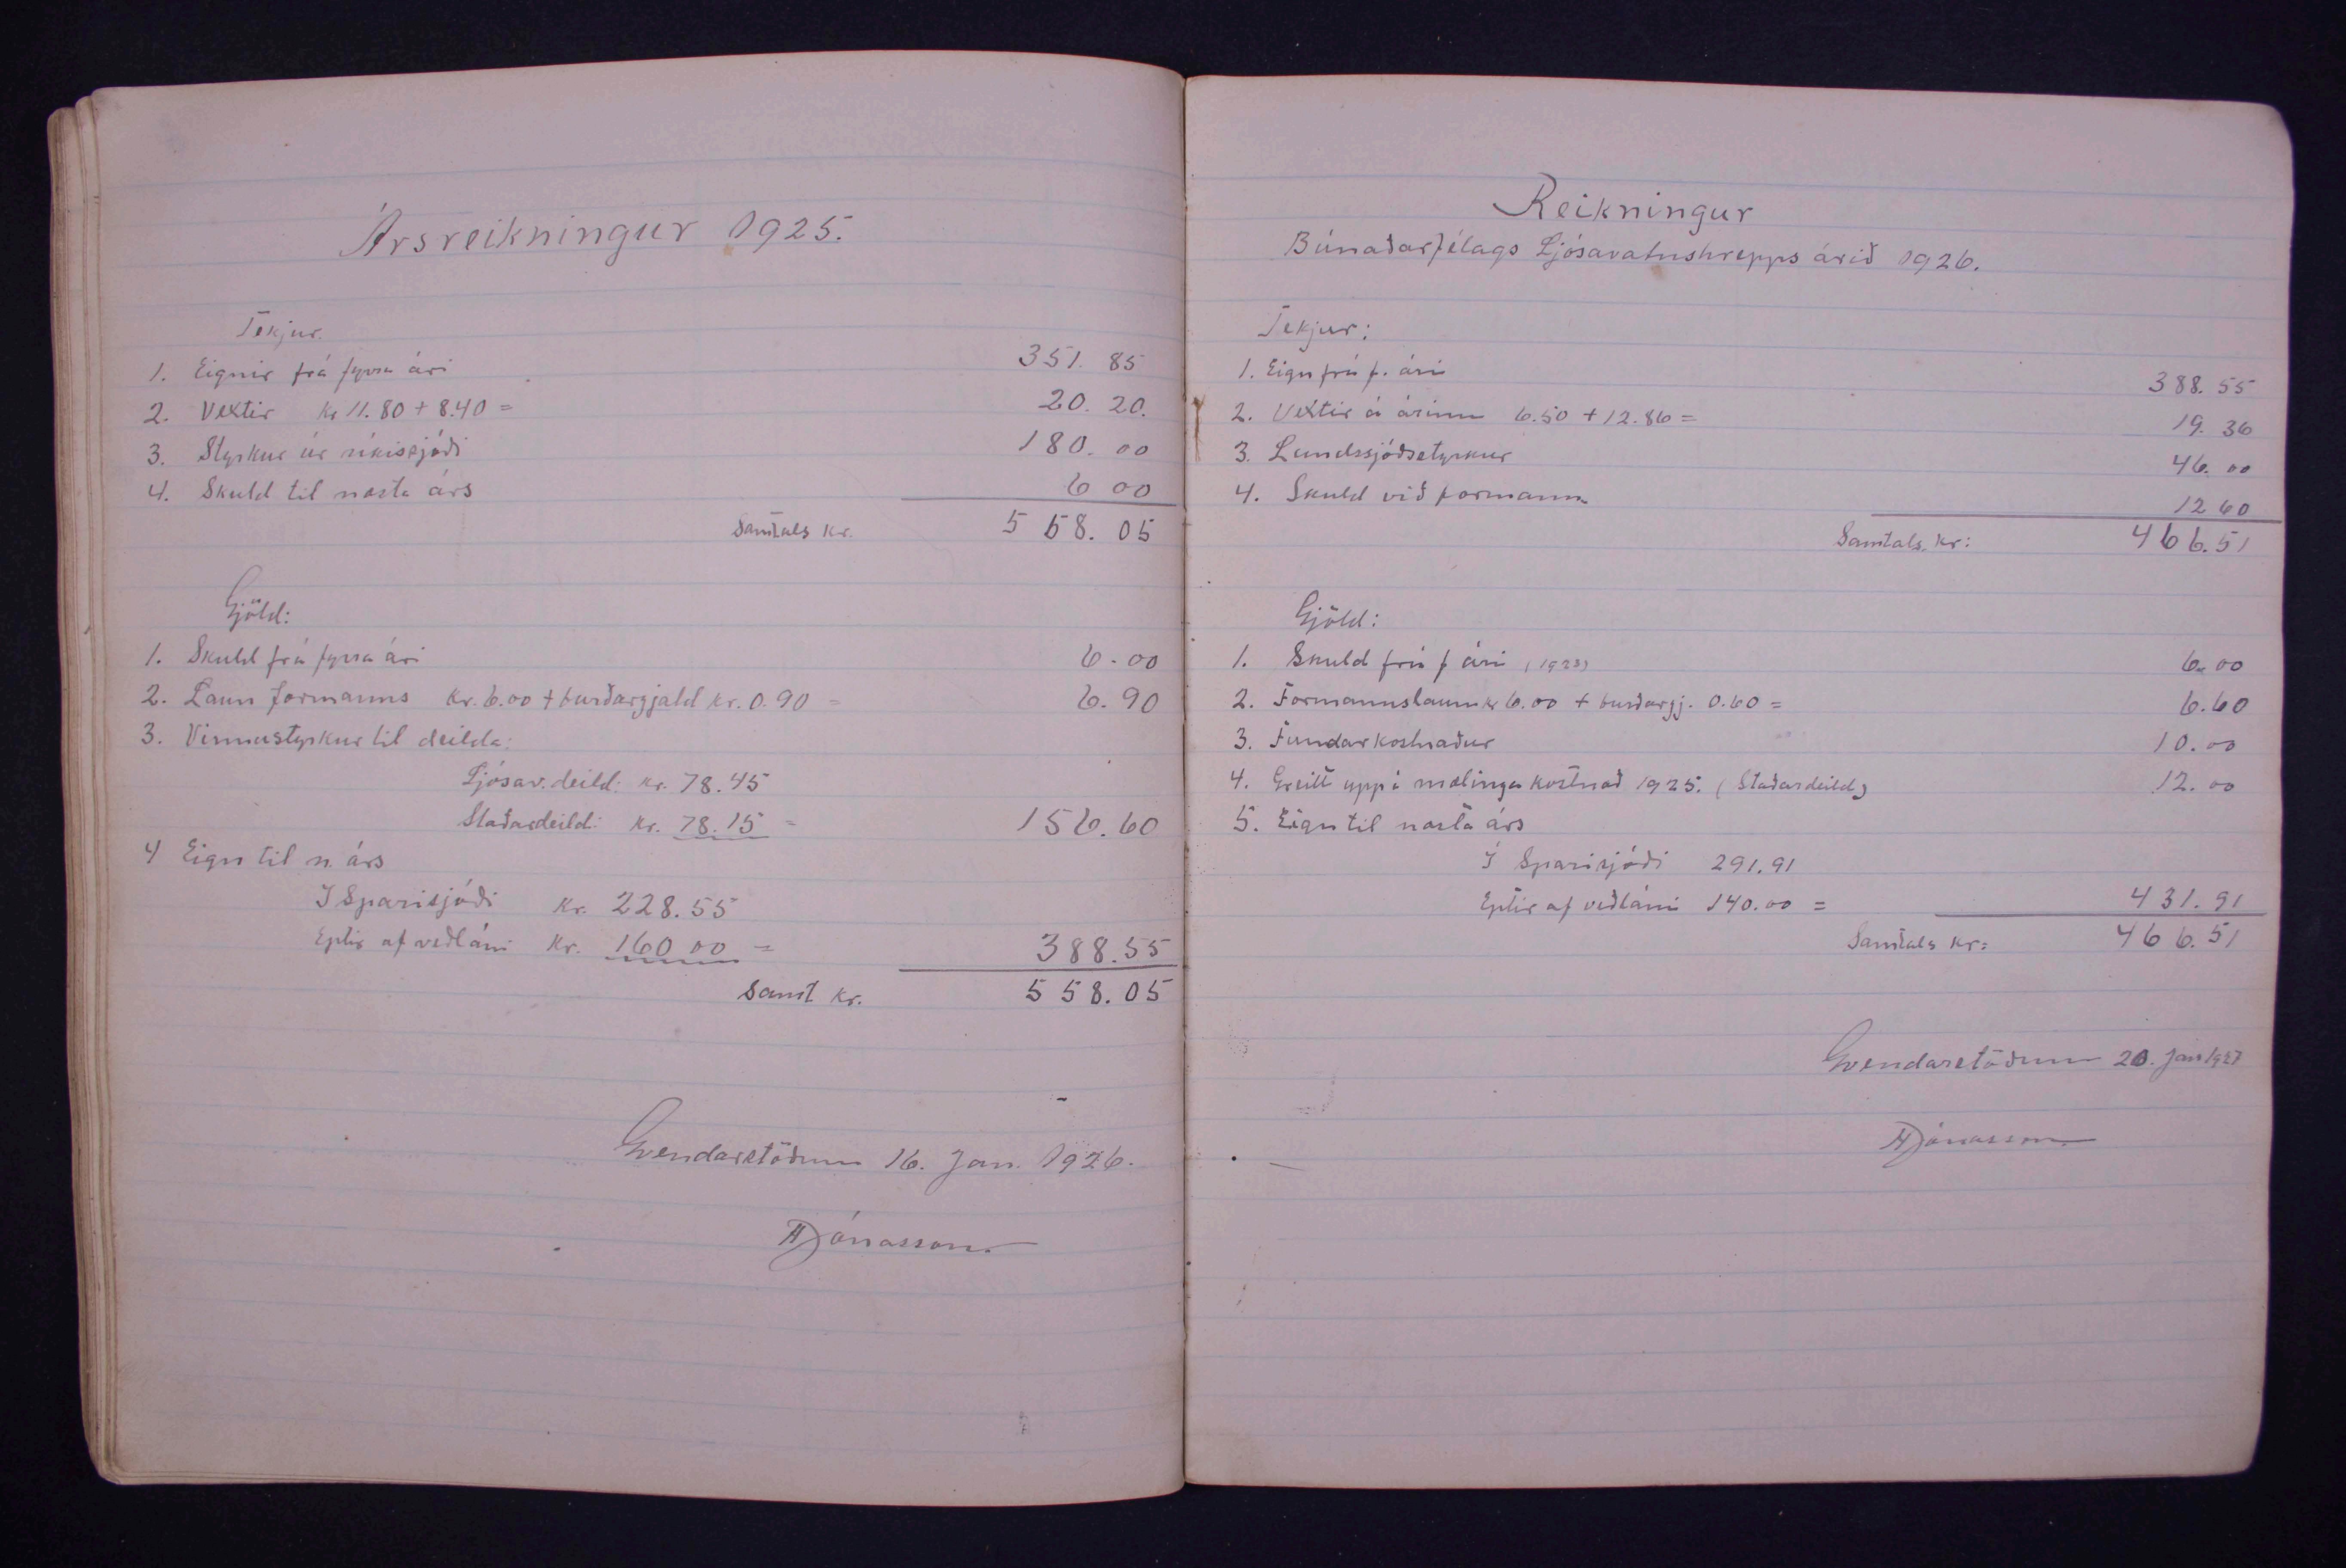 Ársreikningur 1925.
Tekjur.
1. Eignir frá fyrra ári 351.85
2. Vextir kr 11.80 + 8.40 = 20.20.
3. Styrkur úr ríkissjóði 180.00
4. Skuld til næsta árs 6 00
Samtals kr. 558.05
Gjöld:
1. Skuld frá fyrra ári 6.00
2. Laun formanns kr. 6.00 + burðargjald kr. 0.90 = 6.90
3. Vinnustyrkur til deilda:
Ljósav.deild: kr. 78.45
Staðardeild: kr. 78.15 = 156.60
4 Eign til n. árs
Í Sparisjóði kr. 228.55
Eptir af veðláni kr. 160 00 = 388.55
Samt kr. 558.05
Gvendarstöðum 16. Jan. 1926.
HJónasson.
Reikningur
Búnaðarfélags Ljósavatnshrepps árið 1926.
Tekjur:
1. Eign frá f. ári 388.55
2. Vextir á árinu 6.50 + 12.86 = 19.36
3. Landssjóðsstyrkur 46.00
4. Skuld við formann 12 60
Samtals. kr: 466.51
Gjöld:
1. Skuld frá f ári (1925) 6.00
2. Formannslaun kr 6.00 + burðargj. 0.60 = 6.60
3. Fundarkostnaður 10.00
4. Greitt uppí mælingakostnað 1925. (Staðardeild) 12.00
5. Eign til næsta árs
Í Sparisjóði 291.91
Eptir af veðláni 140.00 = 431.91
Samtals kr: 466.51
Gvendarstöðum 20. Jan 1927
HJónasson.